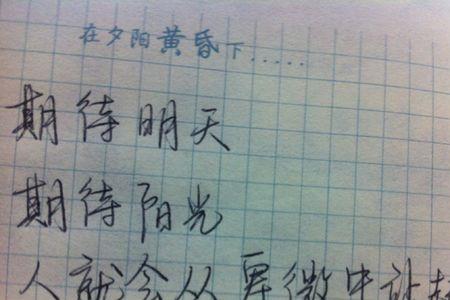 在夕阳黄昏下.....
期待明天
期待阳光
人就会从卑微中站起